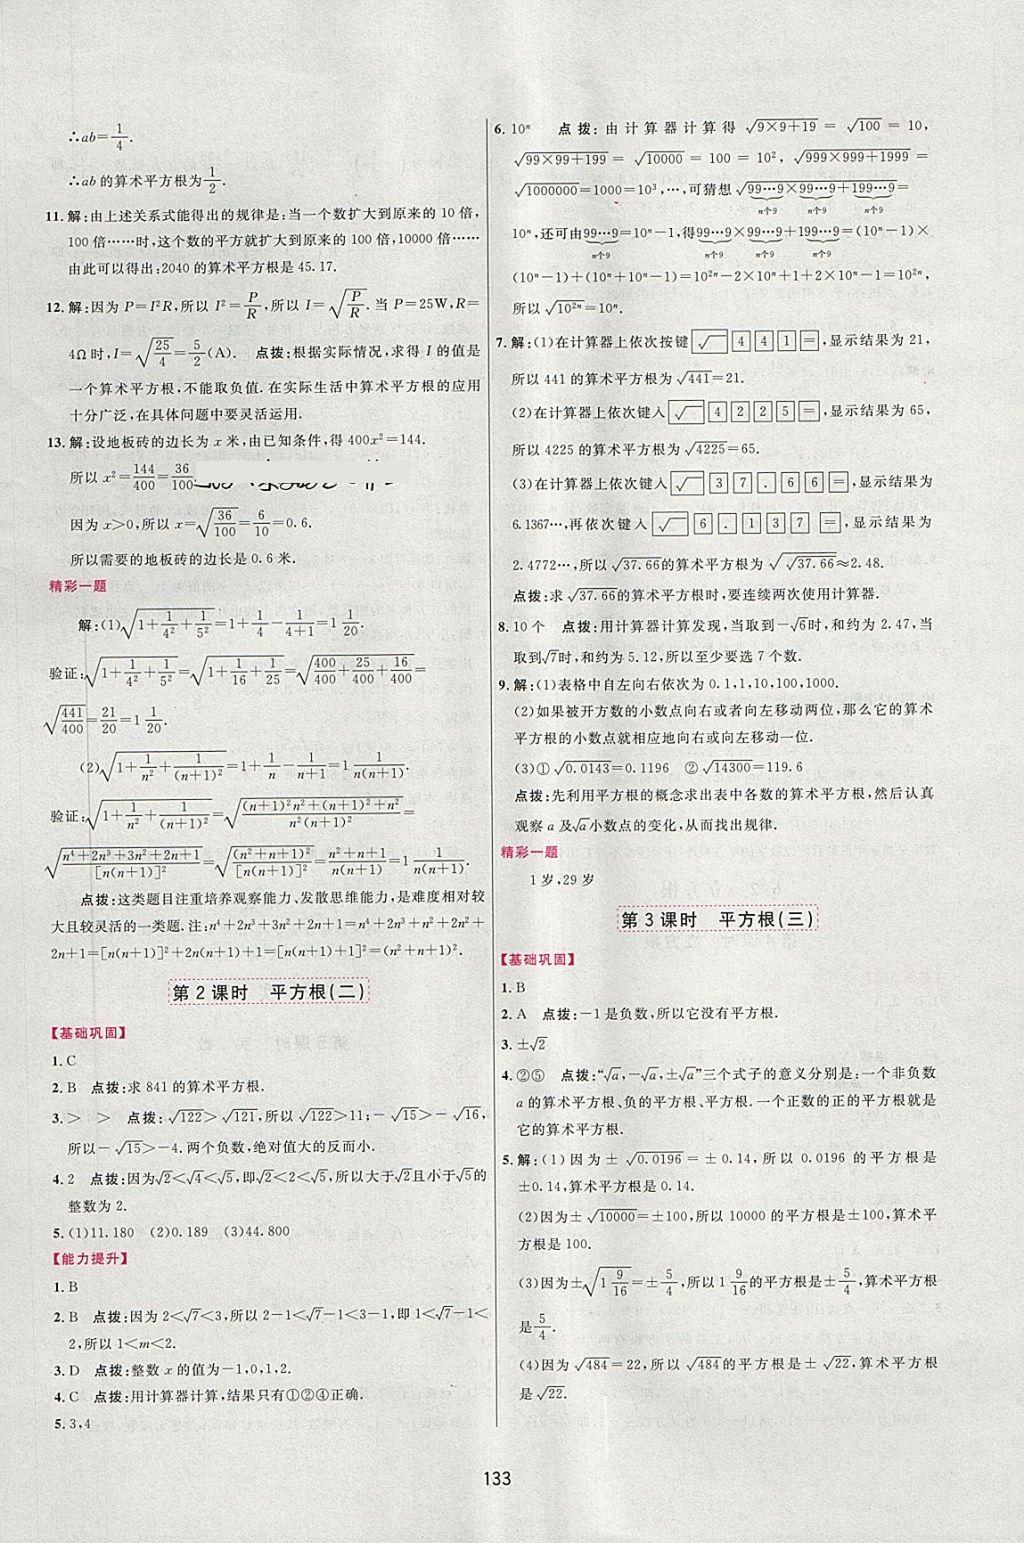 ∴ab=1/4.
∴ab的算术平方根为1/2.
11.解:由上述关系式能得出的规律是:当一个数扩大到原来的10倍,
100倍……时,这个数的平方就扩大到原来的100倍,10000倍……
由此可以得出:2040的算术平方根是45.17.
12.解:因为P=I²R,所以I²=P/R,所以I=√(P/R).当P=25W,R=
4Ω时,I=√(25/4)=5/2(A). 点拨:根据实际情况,求得I的值是
一个算术平方根,不能取负值.在实际生活中算术平方根的应用
十分广泛,在具体问题中要灵活运用.
13.解:设地板砖的边长为x米,由已知条件,得400x²=144.
所以x²=144/400=36/100
因为x>0,所以x=√(36/100)=6/10=0.6.
所以需要的地板砖的边长是0.6米.
精彩一题
解:(1)√(1+1/4²+1/5²)=1+1/4-1/(4+1)=1 1/20.
验证:√(1+1/4²+1/5²)=√(1+1/16+1/25)=√(400/400+25/400+16/400)=
√(441/400)=21/20=1 1/20.
(2)√(1+1/n²+1/(n+1)²)=1+1/n-1/(n+1)=1 1/n(n+1).
验证:√(1+1/n²+1/(n+1)²)=√(((n+1)²n²+(n+1)²+n²)/(n²(n+1)²))=
√((n⁴+2n³+3n²+2n+1)/[n(n+1)]²)=√((n²+n+1)²/[n(n+1)]²)=(n²+n+1)/(n(n+1))=1 1/n(n+1).
点拨:这类题目注重培养观察能力、发散思维能力,是难度相对较
大且较灵活的一类题.注:n⁴+2n³+3n²+2n+1=n⁴+2n³+n²+2n²+
2n+1=[n(n+1)]²+2n(n+1)+1=[n(n+1)+1]²=(n²+n+1)².
第2课时 平方根(二)
【基础巩固】
1.C
2.B 点拨:求841的算术平方根.
3.> > 点拨:√122>√121,所以√122>11;-√15>-√16,
所以-√15>-4.两个负数,绝对值大的反而小.
4.2 点拨:因为√2<√4<√5,即√2<2<√5,所以大于√2且小于√5的
整数为2.
5.(1)11.180 (2)0.189 (3)44.800
【能力提升】
1.B
2.B 点拨:因为2<√7<3,所以2-1<√7-1<3-1,即1<√7-1<
2,所以1<m<2.
3.D 点拨:整数x的值为-1,0,1,2.
4.C 点拨:用计算器计算,结果只有①②④正确.
5.3,4
6.10ⁿ 点拨:由计算器计算得√(9×9+19)=√100=10,
√(99×99+199)=√10000=100=10²,√(999×999+1999)=
√1000000=1000=10³,…,可猜想√(99…9(n个9)×99…9(n个9)+199…9(n个9))=
10ⁿ,还可由99…9(n个9)=10ⁿ-1,得99…9(n个9)×99…9(n个9)+199…9(n个9)=(10ⁿ-1)×
(10ⁿ-1)+(10ⁿ+10ⁿ-1)=10²ⁿ-2×10ⁿ+1+2×10ⁿ-1=10²ⁿ,
所以√(10²ⁿ)=10ⁿ.
7.解:(1)在计算器上依次按键√ 4 4 1 =,显示结果为21,
所以441的算术平方根为√441=21.
(2)在计算器上依次键入√ 4 2 2 5 =,显示结果为65,
所以4225的算术平方根为√4225=65.
(3)在计算器上依次键入√ 3 7 . 6 6 =,显示结果为
6.1367…,再依次键入√ 6 . 1 3 7 =,显示结果为
2.4772…,所以√37.66的算术平方根为√√37.66≈2.48.
点拨:求√37.66的算术平方根时,要连续两次使用计算器.
8.10个 点拨:用计算器计算发现,当取到-√6时,和约为2.47,当
取到√7时,和约为5.12,所以至少要选7个数.
9.解:(1)表格中自左向右依次为0.1,1,10,100,1000.
(2)如果被开方数的小数点向右或者向左移动两位,那么它的算术
平方根的小数点就相应地向右或向左移动一位.
(3)①√0.0143=0.1196 ②√14300=119.6
点拨:先利用平方根的概念求出表中各数的算术平方根,然后认真
观察a及√a小数点的变化,从而找出规律.
精彩一题
1岁,29岁
第3课时 平方根(三)
【基础巩固】
1.B
2.A 点拨:-1是负数,所以它没有平方根.
3.±√2
4.②⑤ 点拨:“√a,-√a,±√a”三个式子的意义分别是:一个非负数
a的算术平方根、负的平方根、平方根.一个正数的正的平方根就是
它的算术平方根.
5.解:(1)因为±√0.0196=±0.14,所以0.0196的平方根是
±0.14,算术平方根是0.14.
(2)因为±√10000=±100,所以10000的平方根是±100,算术平
方根是100.
(3)因为±√(1 9/16)=±5/4,所以1 9/16的平方根是±5/4,算术平方根
是5/4.
(4)因为√484=22,所以√484的平方根是±√22,算术平方根
是√22.
133